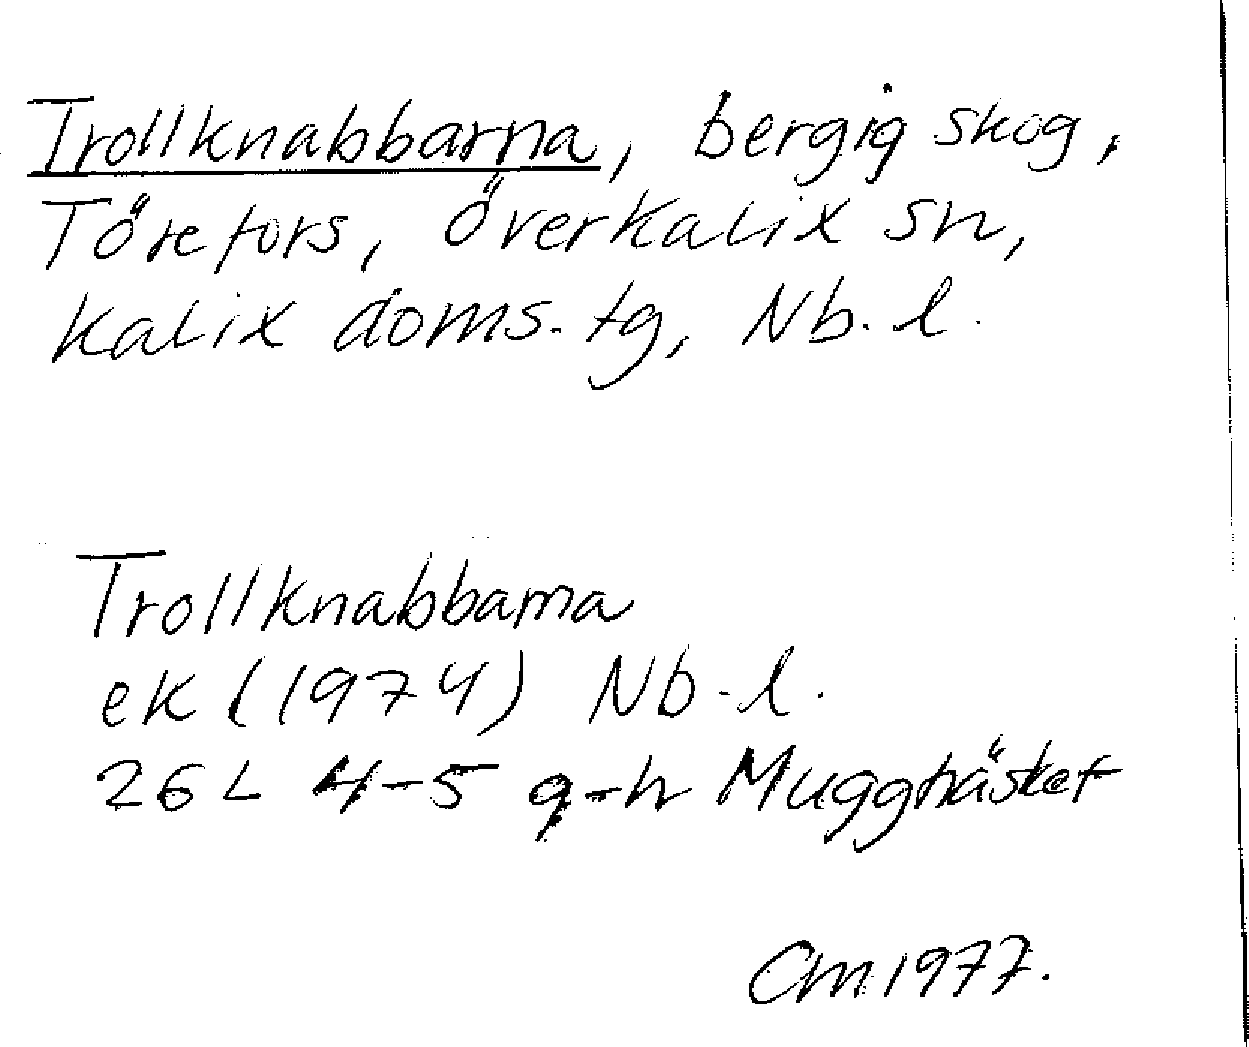 Trollknabbarna, bergig skog,
Törefors, Överkalix sn,
Kalix doms. tg, Nb. l.
Trollknabbarna
ek (1974) Nb. l.
26 L 4-5 g-h Muggträsket
Cm 1977.